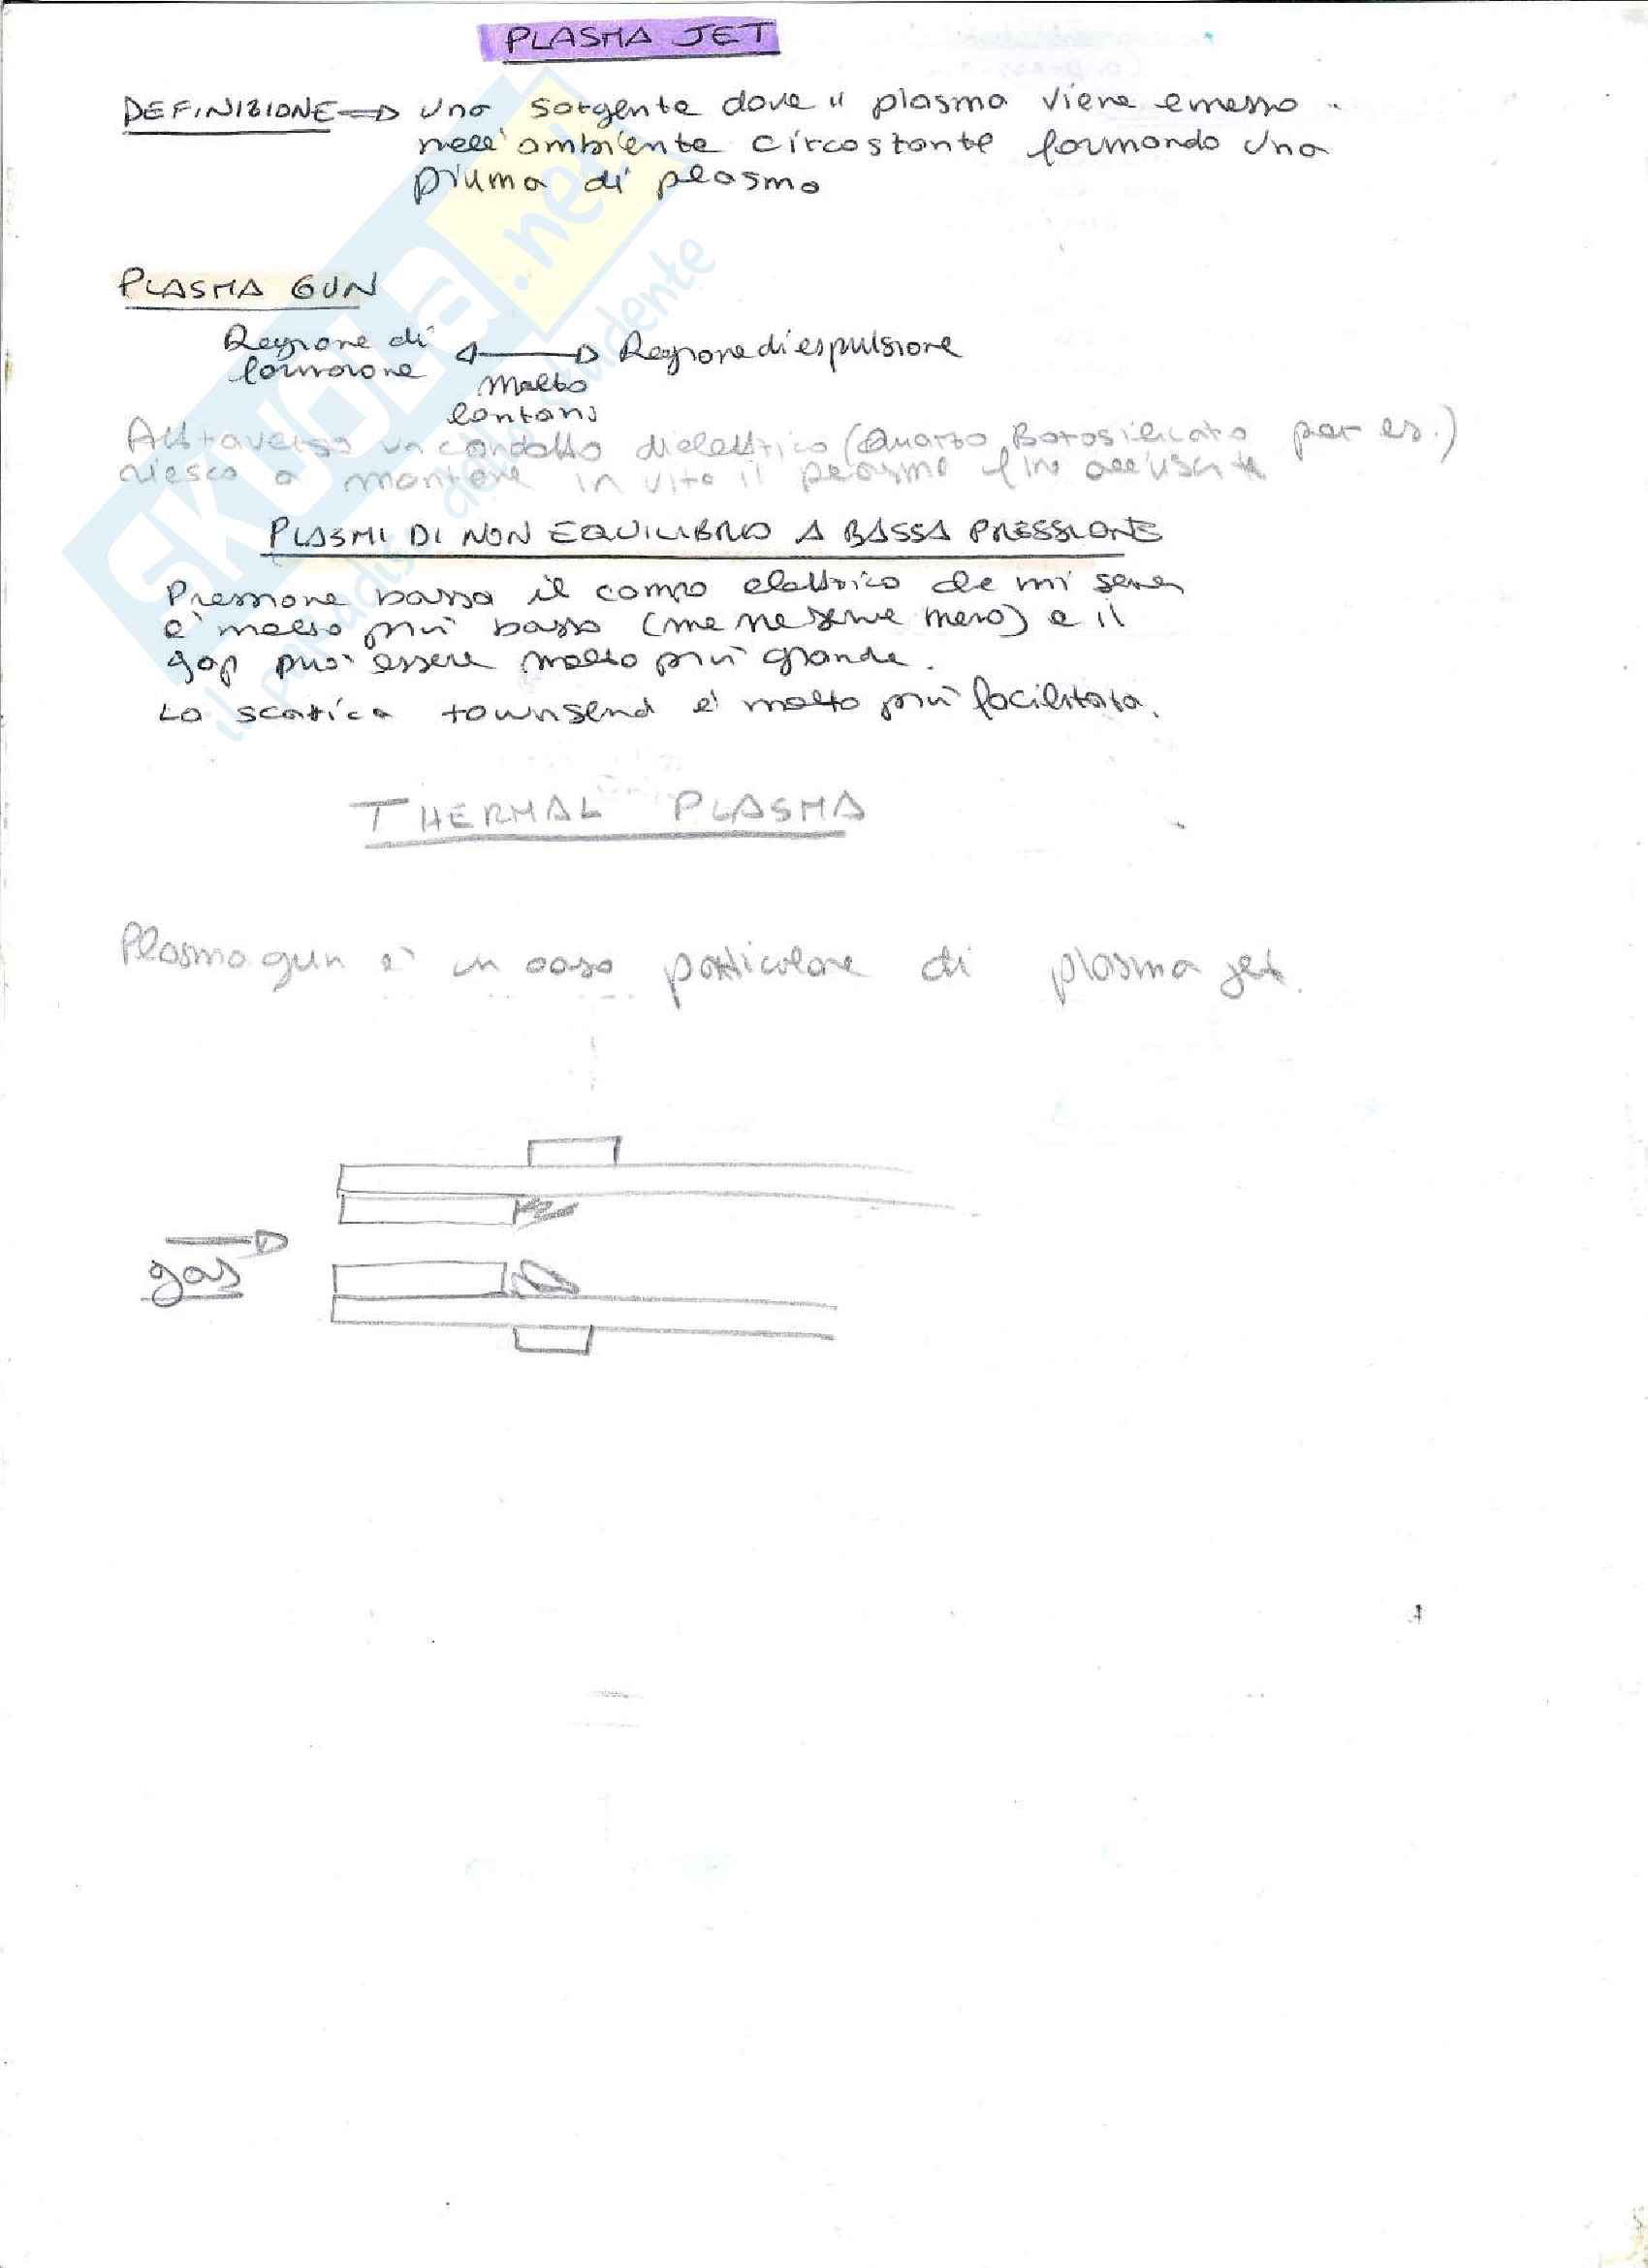 PLASMA JET
DEFINIZIONE => una sorgente dove il plasma viene emesso
nell'ambiente circostante formando una
piuma di plasma
PLASMA GUN
Regione di formazione <-> Regione di espulsione
molto
lontani
Attraverso un condotto dielettrico (Quarzo, Borosilicato per es.)
riesco a mantere in vita il plasma fino all'uscita
PLASMI DI NON EQUILIBRIO A BASSA PRESSIONE
Pressione bassa il campo elettrico che mi serve
è molto più basso (me ne serve meno) e il
gap può essere molto più grande.
La scarica townsend è molto più facilitata.
THERMAL PLASMA
Plasma gun è un caso particolare di plasma jet.
gas
SKUOLA.net
il paradiso dello studente